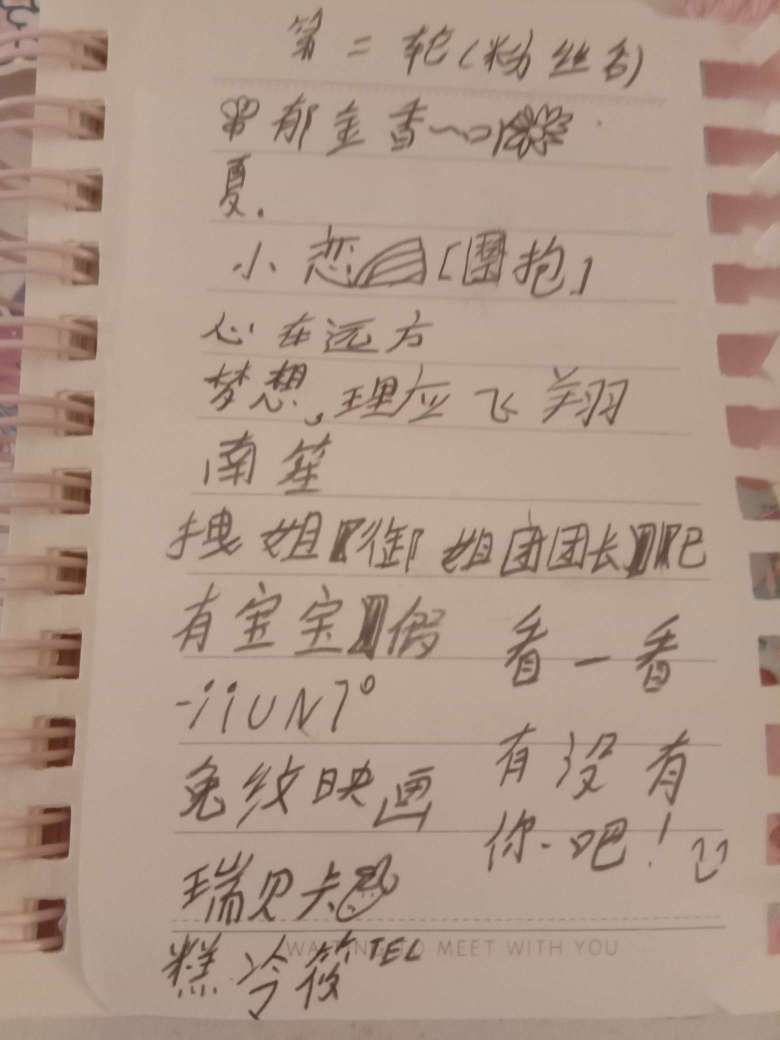 第二轮(粉丝名)
郁金香
夏.
小恋[團抱]
心在远方
梦想,理应飞翔
南笙
拽姐【御姐团团长】吧
有宝宝】假
-iiUN7°
兔纹映画
瑞贝卡
糕冷筱TEL
看一看
有没有
你吧!
WA TO MEET WITH YOU